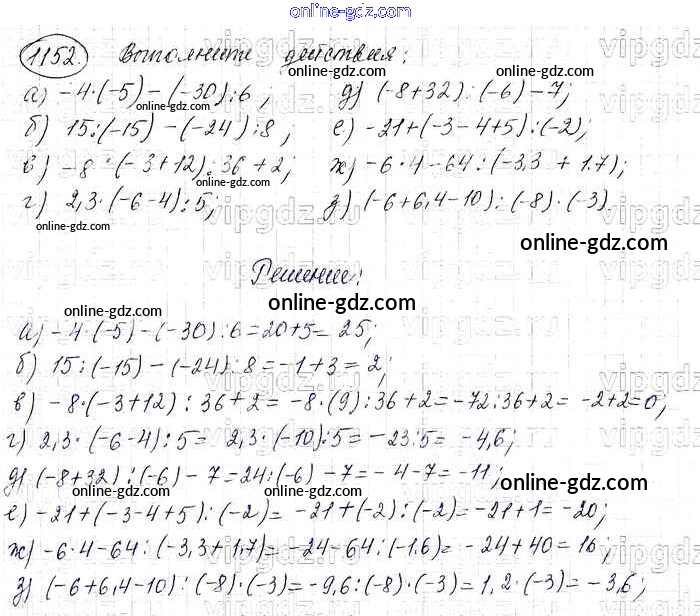 online-gdz.com
1152. Выполните действия:
online-gdz.com
а) -4·(-5)-(-30):6; д) (-8+32):(-6)-7;
online-gdz.com
б) 15:(-15)-(-24):8; е) -21+(-3-4+5):(-2);
online-gdz.com
в) -8·(-3+12):36+2; ж) -6·4-64:(-3,3+1.7);
online-gdz.com
г) 2,3·(-6-4):5; д) (-6+6,4-10):(-8)·(-3).
online-gdz.com
online-gdz.com
Решение:
online-gdz.com
online-gdz.com
а) -4·(-5)-(-30):6=20+5=25;
online-gdz.com
б) 15:(-15)-(-24):8=-1+3=2;
online-gdz.com
в) -8·(-3+12):36+2=-8·(9):36+2=-72:36+2=-2+2=0;
online-gdz.com
г) 2,3·(-6-4):5=2,3·(-10):5=-23:5=-4,6;
online-gdz.com
д) (-8+32):(-6)-7=24:(-6)-7=-4-7=-11;
online-gdz.com
online-gdz.com
online-gdz.com
е) -21+(-3-4+5):(-2)=-21+(-2):(-2)=-21+1=-20;
ж) -6·4-64:(-3,3+1,7)=-24-64:(-1.6)=-24+40=16;
online-gdz.com
online-gdz.com
з) (-6+6,4-10):(-8)·(-3)=-9,6:(-8)·(-3)=1,2·(-3)=-3,6;